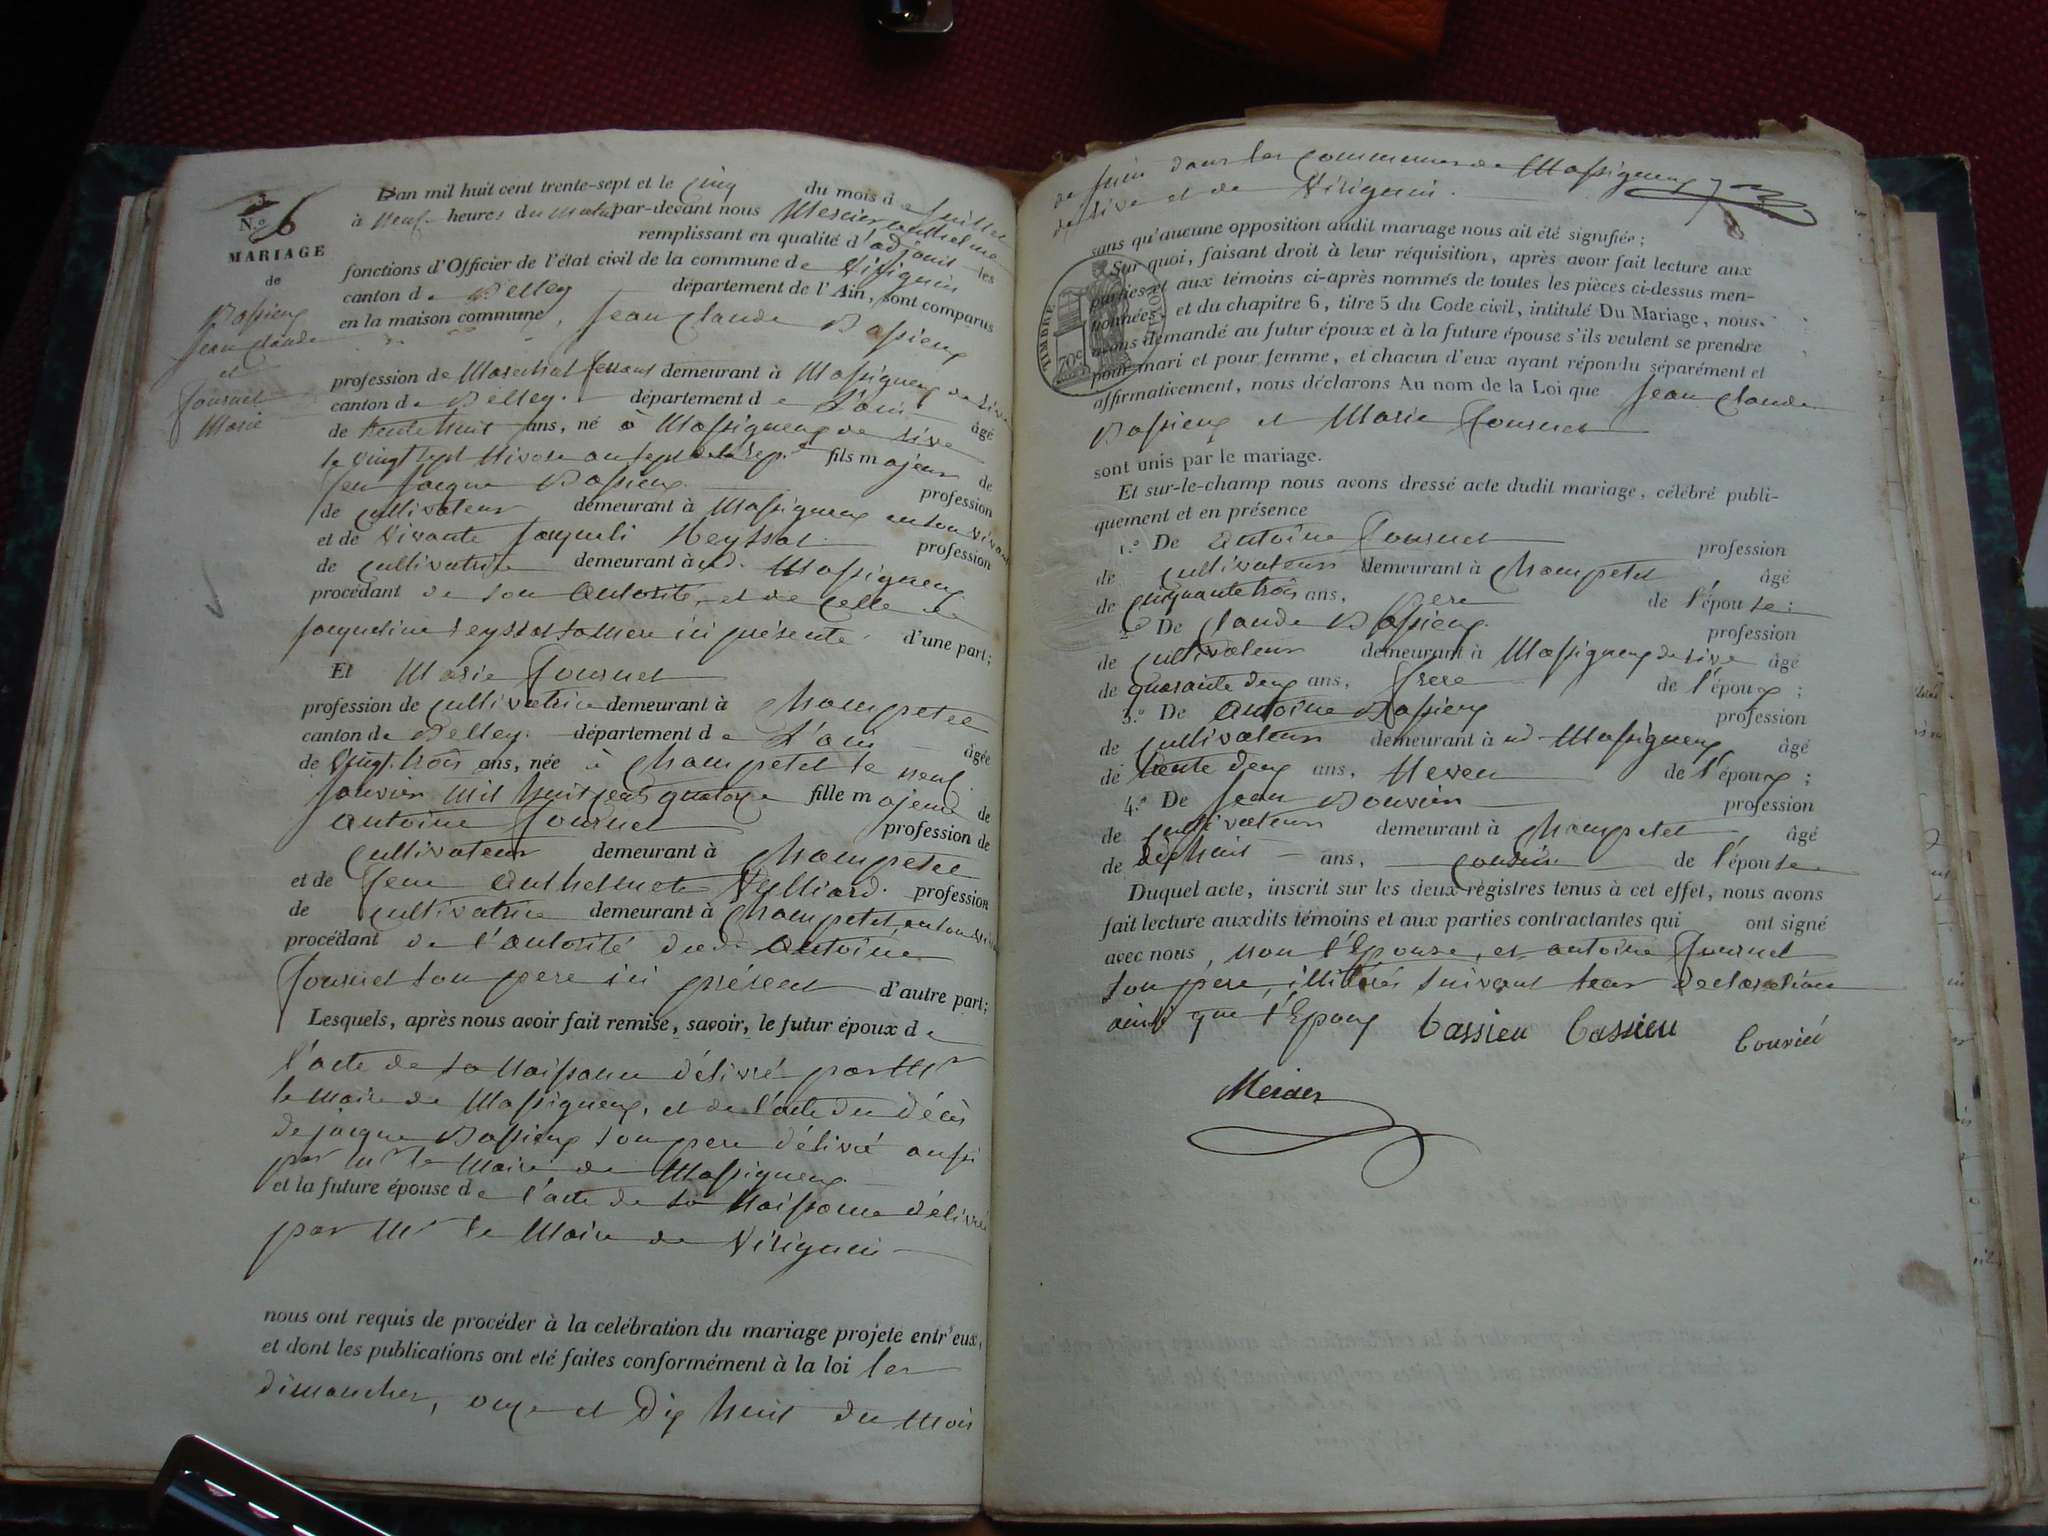 N.º 6
MARIAGE
de
Bassieux
Jean Claude
et
Tournet
Marie
L'an mil huit cent trente-sept et le cinq du mois de Juillet
à neuf heures du matin par-devant nous Mercier anthelme
remplissant en qualité d'adjoint les
fonctions d'Officier de l'état civil de la commune de Virignin
canton de Belley département de l'Ain, sont comparus
en la maison commune, Jean Claude Bassieux
profession de Marechal ferrant demeurant à Massigneux de rive
canton de Belley. département de L'ain âgé
de trente huit ans, né à Massigneux de rive
le vingt sept Nivose an sept de la rep.e fils majeur de
feu Jacque Bassieux profession
de cultivateur demeurant à Massigneux en son vivant
et de vivante Jacqueli Neyssat profession
de cultivatrice demeurant à ud. Massigneux
procédant de son autorité, et de celle de
Jacqueline Neyssat sa mere ici présente d'une part;
Et Marie Tournet
profession de cultivatrice demeurant à Champetel
canton de Belley. département de L'ain âgée
de vingt trois ans, née à Champetel le neuf
Janvier mil huit cent quatorze fille majeure de
antoine Tournet profession de
cultivateur demeurant à Champetel
et de feue anthelmete Vulliard. profession
de cultivatrice demeurant à Champetel, en son viv
procédant de l'autorité dud. antoine
Tournet son pere ici présent d'autre part;
Lesquels, après nous avoir fait remise, savoir, le futur époux de
l'acte de sa Naissance délivré par Mr
le maire de Massigneux, et de l'acte du décès
de jacque Bassieux son pere délivré aussi
par Mr le Maire de Massigneux
et la future épouse de l'acte de sa Naissance délivré
par Mr le Maire de Virignin
nous ont requis de procéder à la celébration du mariage projeté entr'eux,
et dont les publications ont été faites conformément à la loi les
dimanches, onze et dix huit du mois
de juin dans les communes de Massigneux
de rive et de Virignin.
sans qu'aucune opposition audit mariage nous ait été signifiée;
Sur quoi, faisant droit à leur réquisition, après avoir fait lecture aux
parties et aux témoins ci-après nommés de toutes les pièces ci-dessus men-
tionnées, et du chapitre 6, titre 5 du Code civil, intitulé Du Mariage, nous
avons demandé au futur époux et à la future épouse s'ils veulent se prendre
pour mari et pour femme, et chacun d'eux ayant répondu séparément et
affirmativement, nous déclarons Au nom de la Loi que Jean Claude
Bassieux et Marie Tournet
sont unis par le mariage.
Et sur-le-champ nous avons dressé acte dudit mariage, célébré publi-
quement et en présence
1.º De antoine Tournet profession
de cultivateur demeurant à Champetel âgé
de cinquante trois ans, Pere de l'épouse;
2.º De Claude Bassieux profession
de cultivateur demeurant à Massigneux de rive âgé
de quarante deux ans, frere de l'époux;
3.º De antoine Bassieux profession
de cultivateur demeurant à ud. Massigneux âgé
de trente deux ans, Neveu de l'époux;
4.º De Jean Bouvier profession
de cultivateur demeurant à Champetel âgé
de dix huit ans, cousin de l'épouse
Duquel acte, inscrit sur les deux registres tenus à cet effet, nous avons
fait lecture auxdits témoins et aux parties contractantes qui ont signé
avec nous, non l'Epouse, et antoine Tournet
son pere, illiterés suivant leur declaration
ainsi que l'Epoux bassieu bassieu bouvié
Mercier
TIMBRE ROYAL
70c